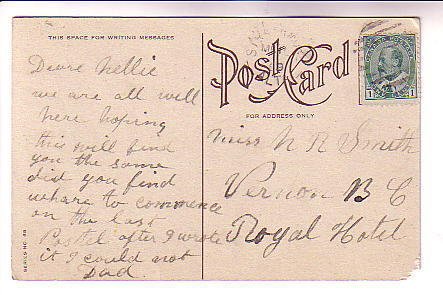 THIS SPACE FOR WRITING MESSAGES
Deare Nellie
we are all well
here hoping
this will find
you the same
did you find
whare to commence
on the last
Postel after I wrote
it I could not
Dad.
SERIES NO.
Post Card
FOR ADDRESS ONLY
Miss N R Smith
Vernon B C
Royal Hotel
1 1